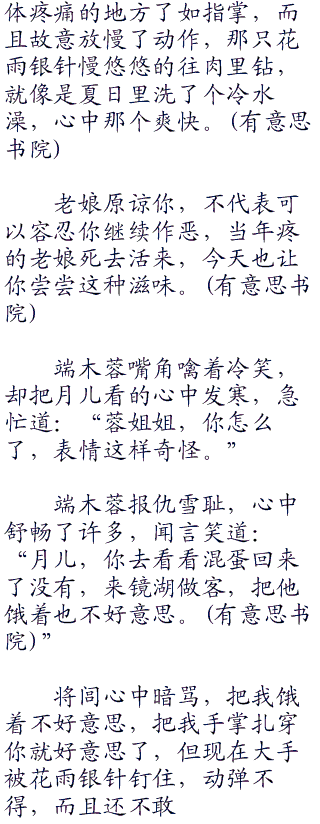 体疼痛的地方了如指掌，而
且故意放慢了动作，那只花
雨银针慢悠悠的往肉里钻，
就像是夏日里洗了个冷水
澡，心中那个爽快。(有意思
书院)
老娘原谅你，不代表可
以容忍你继续作恶，当年疼
的老娘死去活来，今天也让
你尝尝这种滋味。(有意思书
院)
端木蓉嘴角噙着冷笑，
却把月儿看的心中发寒，急
忙道：“蓉姐姐，你怎么
了，表情这样奇怪。”
端木蓉报仇雪耻，心中
舒畅了许多，闻言笑道：
“月儿，你去看看混蛋回来
了没有，来镜湖做客，把他
饿着也不好意思。(有意思书
院)”
将闾心中暗骂，把我饿
着不好意思，把我手掌扎穿
你就好意思了，但现在大手
被花雨银针钉住，动弹不
得，而且还不敢